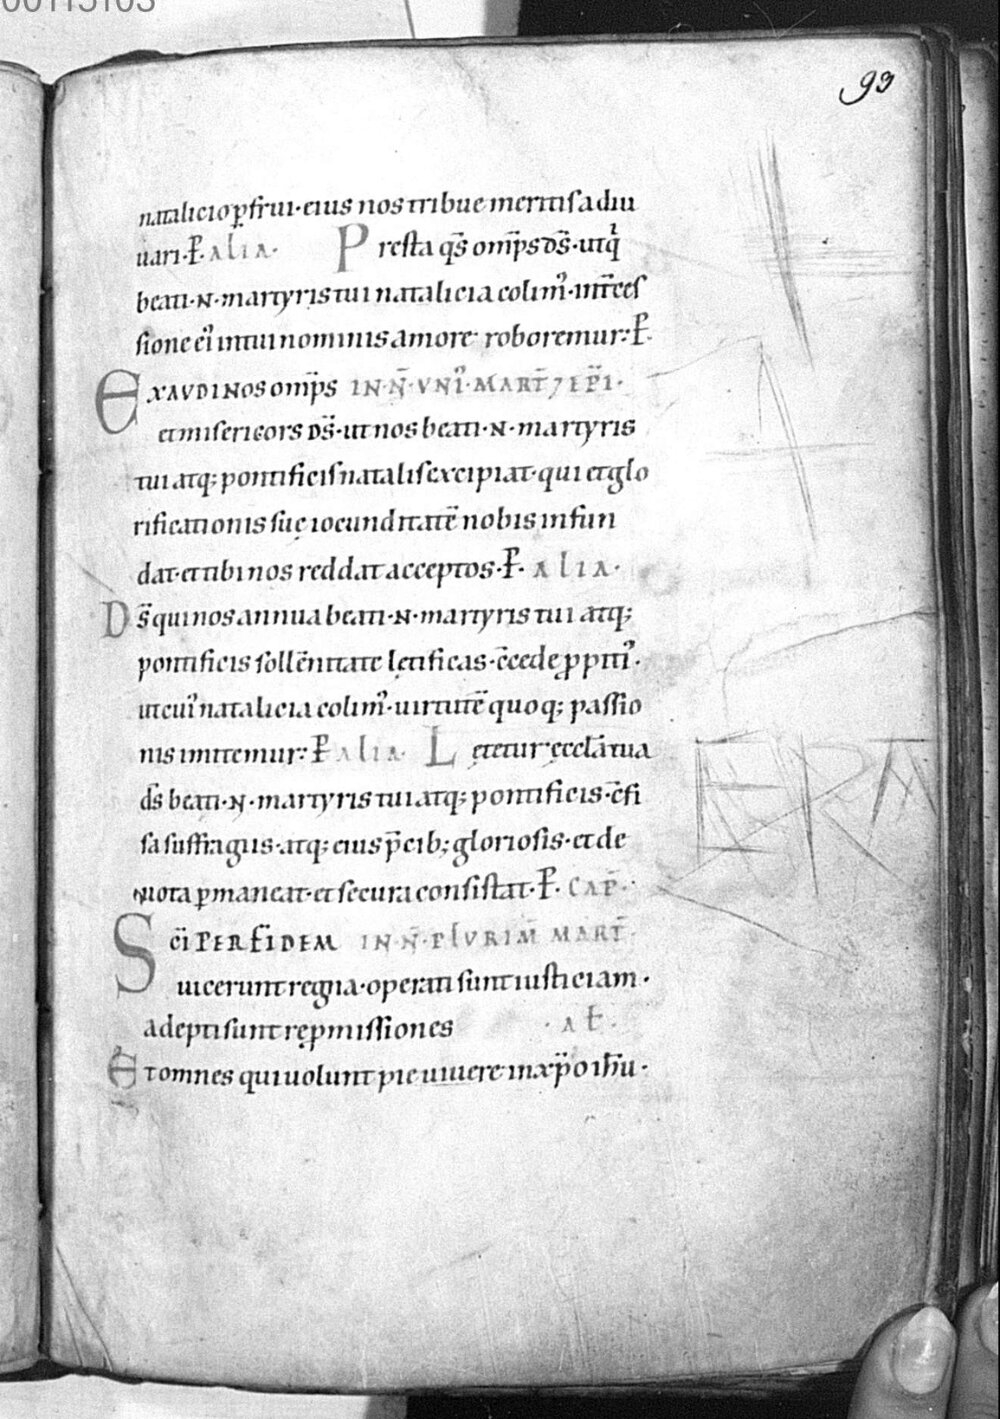 00115103
93
natalicio ꝑfrui · eius nos tribue meritis adiu
uari · P̄ · alia · Presta qs̄ omp̄s ds̄ · ut qͥ
beati · N · martyris tui natalicia colim᷒ · int̄ces
sione ei᷒ in tui nominis amore roboremur : P̄ ·
EXAUDI NOS omp̄s IN · N̄ · UNI᷒ · MART̄ 7 EP̄I ·
et misericors ds̄ · ut nos beati · N · martyris
tui atq; pontificis natalis excipiat · qui et glo
rificationis suę iocunditatē nobis infun
dat · et tibi nos reddat acceptos · P̄ · alia ·
Ds̄ qui nos annua beati · N · martyris tui atq;
pontificis sollēnitate lętificas · c̄cede ꝓpiti᷒ ·
ut cui᷒ natalicia colim᷒ · uirtutē quoq; passio
nis imitemur : P̄ alia · Lętetur ęccl̄a tua
ds̄ beati · N · martyris tui atq; pontificis · c̄fi
sa suffragiis · atq; eius p̄cib; gloriosis · et de
uota ꝑmaneat · et secura consistat · P̄ · CAP̄ ·
Sc̄i PER FIDEM IN · N̄ · PLURIM̄ MART̄ ·
uicerunt regna · operati sunt iusticiam ·
adepti sunt rep̱missiones · A ł ·
Et omnes qui uolunt pie uiuere in xp̄o ih̄u ·
ERA